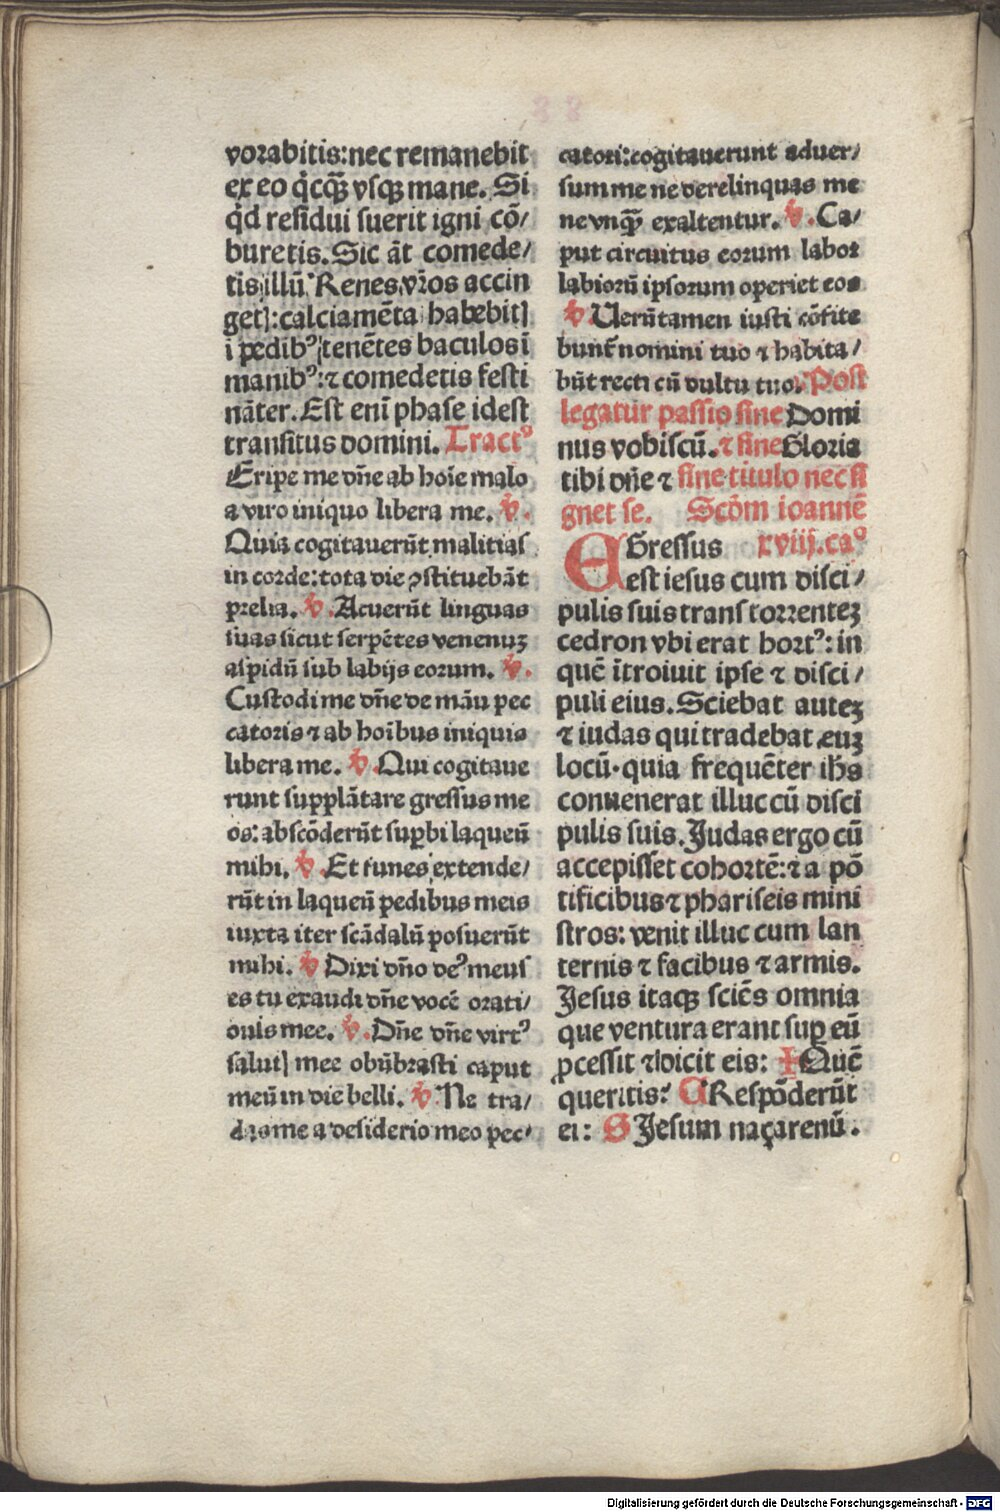 vorabitis: nec remanebit
ex eo q̇cq̄ꝫ vsqꝫ mane. Si
q̇d residui fuerit igni cō/
buretis. Sic āt comede/
tis illū. Renes vr̄os accin
get]: calciamēta habebit]
ī pedibꝰ tenētes baculos ī
manibꝰ: ⁊ comedetis festi
nāter. Est enī phase idest
transitus domini. Tractꝰ
Eripe me dn̄e ab hoīe malo
a viro iniquo libera me. ꝟ.
Quia cogitauerūt malitias
in corde: tota die ꝯstituebāt
prelia. ꝟ. Acuerūt linguas
suas sicut serpētes venenuꝫ
aspidū sub labijs eorum. ꝟ.
Custodi me dn̄e de māu pec
catoris ⁊ ab hoībus iniquis
libera me. ꝟ. Qui cogitaue
runt supplātare gressus me
os: abscōderūt suꝑbi laqueū
mihi. ꝟ. Et funes extende/
rūt in laqueū pedibus meis
iuxta iter scādalū posuerūt
mihi. ꝟ Dixi dn̄o deꝰ meus
es tu exaudi dn̄e vocē orati/
onis mee. ꝟ. Dn̄e dn̄e virtꝰ
salut] mee obūbrasti caput
meū in die belli. ꝟ. Ne tra/
das me a desiderio meo pec/
catori: cogitauerunt aduer/
sum me ne derelinquas me
ne vnq̄ꝫ exaltentur. ꝟ. Ca/
put circuitus eorum labor
labiorū ipsorum operiet eos
ꝟ. Uerūtamen iusti cōfite
bunt̄ nomini tuo ⁊ habita/
būt recti cū vultu tuo. Post
legatur passio sine Domi
nus vobiscū. ⁊ sine Gloria
tibi dn̄e ⁊ sine titulo nec si
gnet se. Scōm ioannē
EGressus xviij. caꝰ
est iesus cum disci/
pulis suis trans torrenteꝫ
cedron vbi erat hortꝰ: in
quē ītroiuit ipse ⁊ disci/
puli eius. Sciebat auteꝫ
⁊ iudas qui tradebat euꝫ
locū. quia frequēter ih̄s
conuenerat illuc cū disci
pulis suis. Judas ergo cū
accepisset cohortē: ⁊ a pō
tificibus ⁊ phariseis mini
stros: venit illuc cum lan
ternis ⁊ facibus ⁊ armis.
Jesus itaqꝫ sciēs omnia
que ventura erant suꝑ eū
ꝓcessit ⁊ dicit eis: ✠ Quē
queritis? C Respōderūt
ei: S Jesum naçarenū.
Digitalisierung gefördert durch die Deutsche Forschungsgemeinschaft - DFG